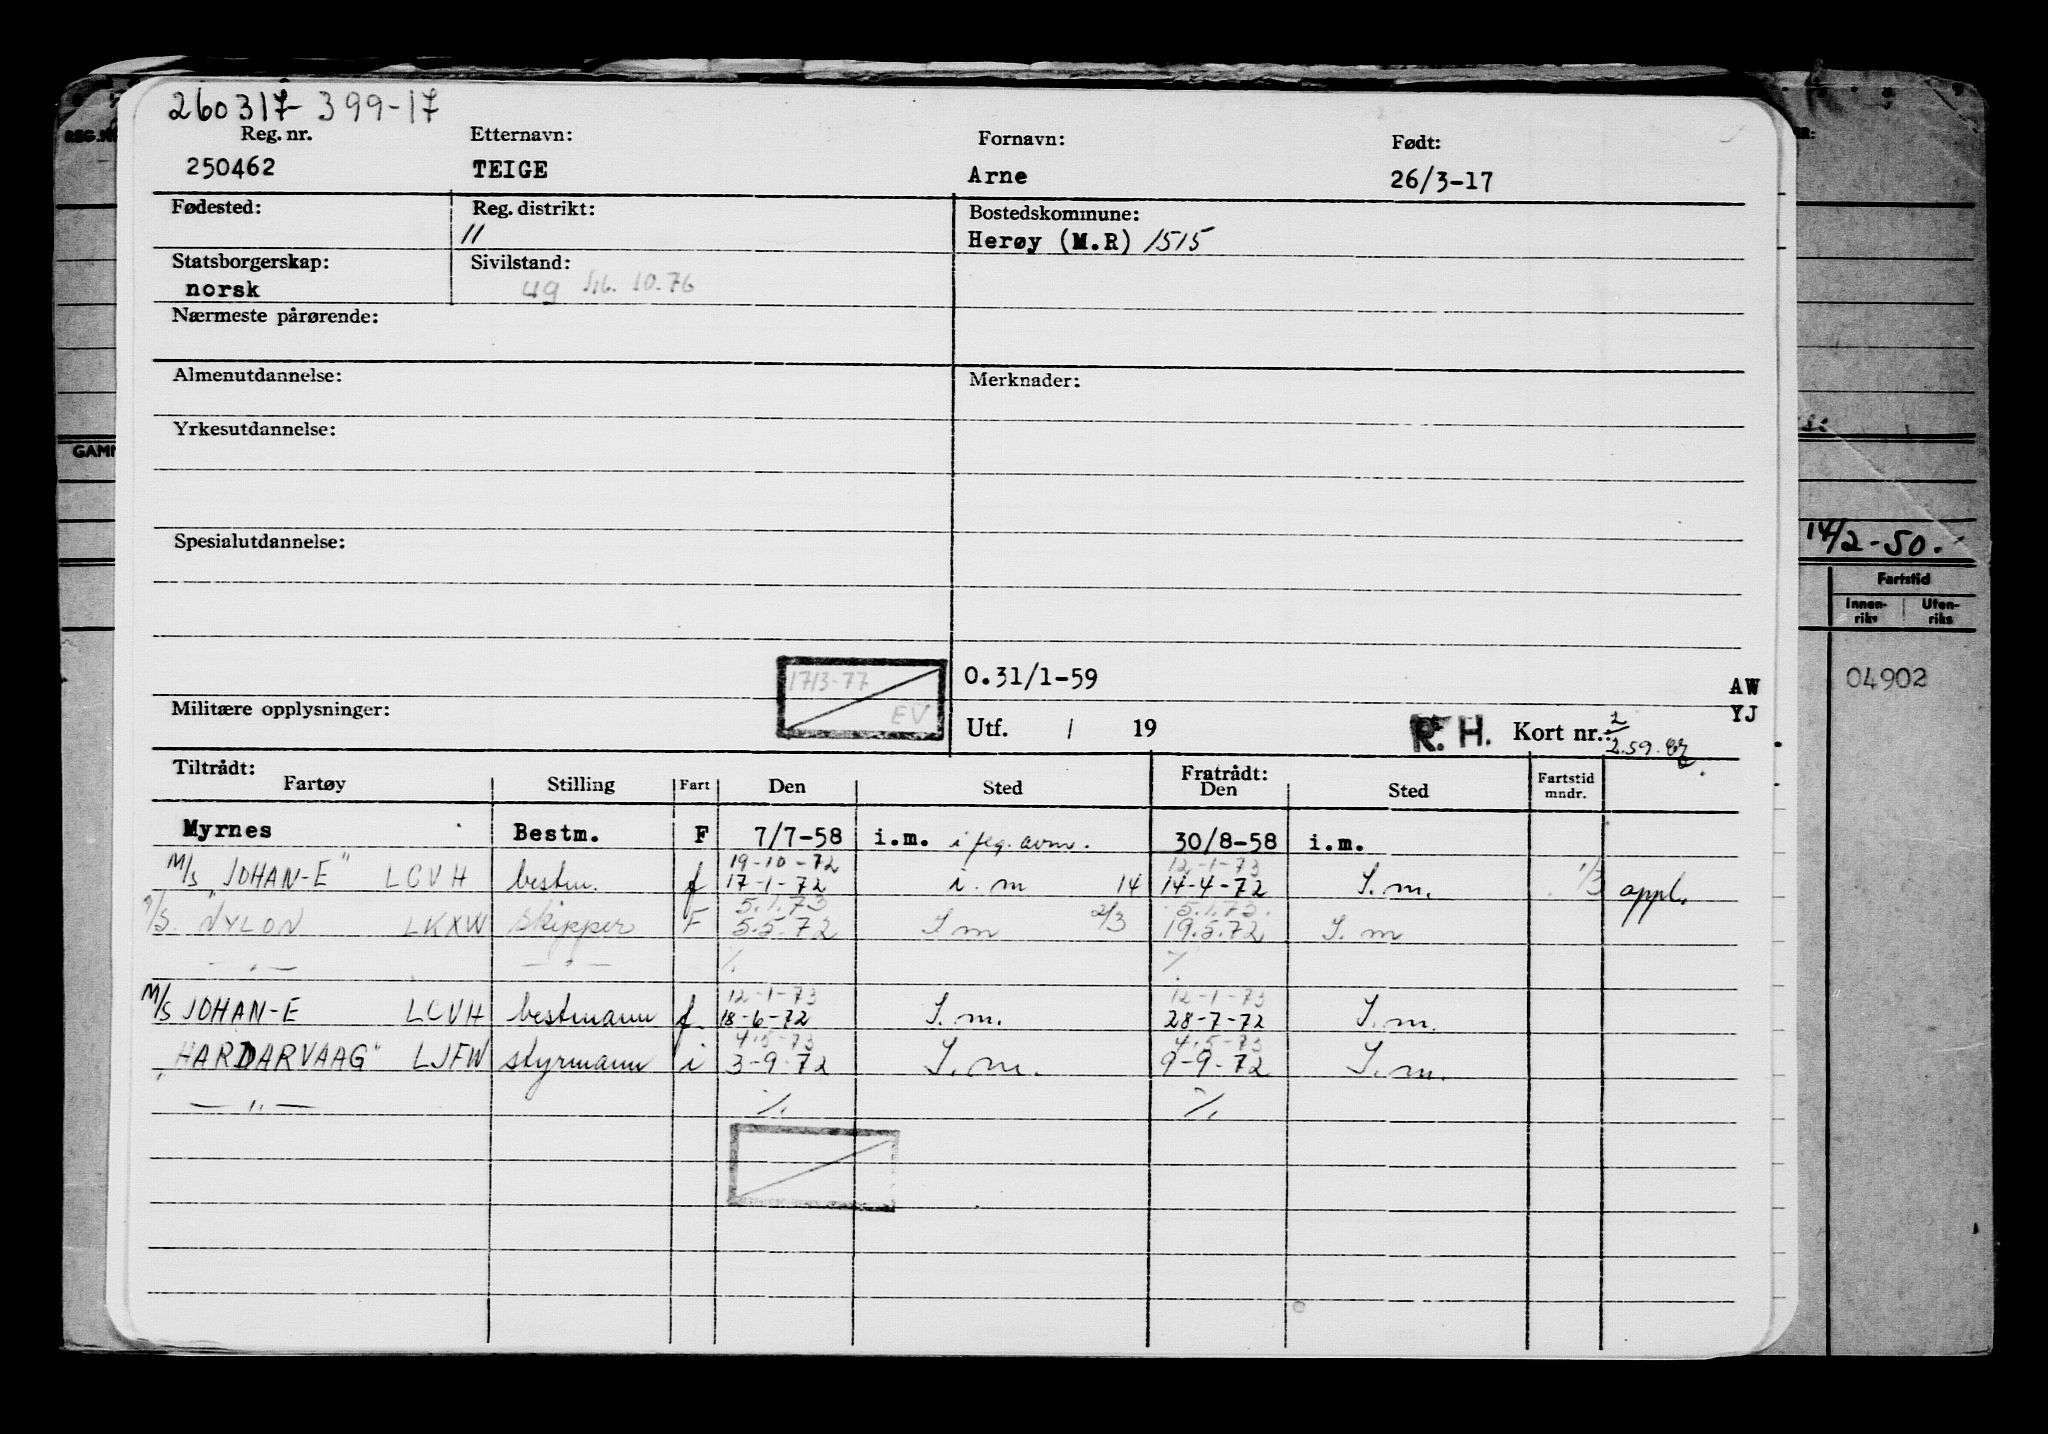 260317-399-17
Reg. nr. Etternavn: Fornavn: Født:
250462 TEIGE Arne 26/3-17
Fødested: Reg. distrikt: Bostedskommune:
11 Herøy (M.R) 1515
Statsborgerskap: Sivilstand:
norsk ug 10.76
Nærmeste pårørende:
Almenutdannelse: Merknader:
Yrkesutdannelse:
Spesialutdannelse:
14/2-50.
Fartstid
Innen-riks Uten-riks
17/3-77 0.31/1-59 AW 04902
Militære opplysninger: EV Utf. / 19 R.H. Kort nr.: 2 YJ
2.59.
Tiltrådt: Fratrådt:
Fartøy Stilling Fart Den Sted Den Sted Fartstid mndr.
Myrnes Bestm. F 7/7-58 i.m. i flg. avm. 30/8-58 i.m.
19-10-72 12-1-73
M/S "JOHAN-E" LCVH bestm. f 17-1-72 i.m 14 14-4-72 I.m. 1/3 oppl.
5.1.73 5.1.73.
NYLON LKXW skipper F 5.5.72 I m 2/3 19.5.72 I.m
— " — — " — % %
12-1-73 12-1-73
M/S JOHAN-E LCVH bestmann f. 18-6-72 I.m. 28-7-72 I.m.
4.5-73 4.5-73
"HARDARVAAG" LJFW styrmann i 3-9-72 I.m. 9-9-72 I.m.
— " — % %
GAMM